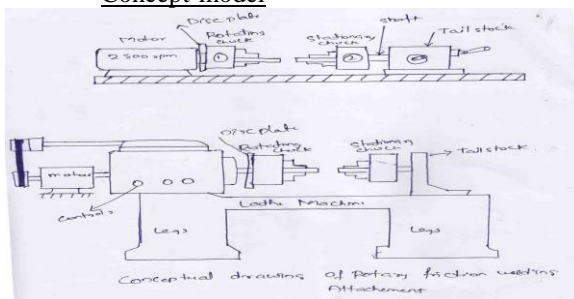 Concept model
Disc plate
Motor
Rotating
chuck
Stationary
chuck
shaft
Tail stock
2500 rpm
1
2
Disc plate
Rotating
chuck
Stationary
chuck
Tail stock
motor
controls
Lathe Machine
Legs
Legs
Conceptual drawing of Rotary friction welding
Attachement